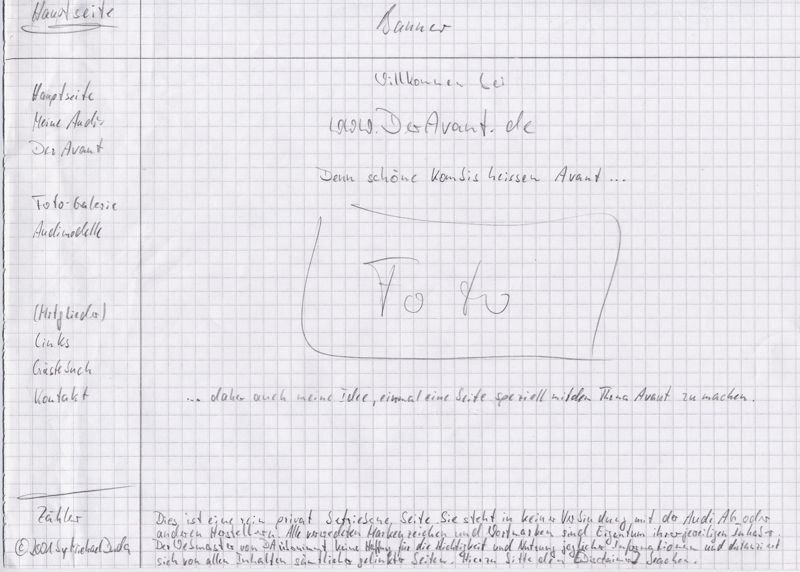 Hauptseite
Banner
Willkommen bei
www.DerAvant.de
Denn schöne Kombis heissen Avant...
Hauptseite
Meine Audis
Der Avant
Foto-Galerie
Audimodelle
(Mitglieder)
Links
Gästebuch
Kontakt
Foto
... daher auch meine Idee, einmal eine Seite speziell mit dem Thema Avant zu machen.
Zähler
©2001 by Michael
Dies ist eine rein privat betriebene Seite. Sie steht in keiner Verbindung mit der Audi AG oder
anderen Herstellern. Alle verwendeten Markenzeichen und Wortmarken sind Eigentum ihrer jeweiligen Inhaber.
Der Webmaster von übernimmt keine Haftung für die Richtigkeit und Nutzung jeglicher Informationen und distanziert
sich von allen Inhalten sämtlicher gelinkter Seiten. Hierzu bitte den Disclaimer beachten.